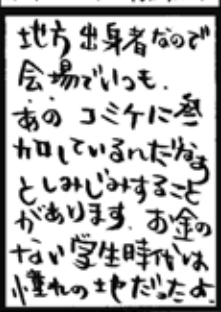 地方出身者なので
会場でいつも、
あの コミケに参
加しているんだなぁ
としみじみすること
があります。お金の
ない学生時代は
憧れの地だったよ